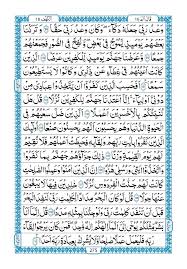 قال الم ١٦
الكهف ١٨
وَعْدُ رَبِّيْ جَعَلَهٗ دَكَّآءَ وَكَانَ وَعْدُ رَبِّيْ حَقًّا وَتَرَكْنَا
بَعْضَهُمْ يَوْمَئِذٍ يَّمُوْجُ فِيْ بَعْضٍ وَّنُفِخَ فِي الصُّوْرِ فَجَمَعْنٰهُمْ
جَمْعًا وَّعَرَضْنَا جَهَنَّمَ يَوْمَئِذٍ لِّلْكٰفِرِيْنَ عَرْضًا الَّذِيْنَ
كَانَتْ اَعْيُنُهُمْ فِيْ غِطَآءٍ عَنْ ذِكْرِيْ وَكَانُوْا لَا يَسْتَطِيْعُوْنَ
سَمْعًا اَفَحَسِبَ الَّذِيْنَ كَفَرُوْٓا اَنْ يَّتَّخِذُوْا عِبَادِيْ مِنْ
دُوْنِيْٓ اَوْلِيَآءَ اِنَّآ اَعْتَدْنَا جَهَنَّمَ لِلْكٰفِرِيْنَ نُزُلًا قُلْ هَلْ
نُنَبِّئُكُمْ بِالْاَخْسَرِيْنَ اَعْمَالًا اَلَّذِيْنَ ضَلَّ سَعْيُهُمْ فِي
الْحَيٰوةِ الدُّنْيَا وَهُمْ يَحْسَبُوْنَ اَنَّهُمْ يُحْسِنُوْنَ صُنْعًا اُولٰٓئِكَ
الَّذِيْنَ كَفَرُوْا بِاٰيٰتِ رَبِّهِمْ وَلِقَآئِهٖ فَحَبِطَتْ اَعْمَالُهُمْ فَلَا نُقِيْمُ
لَهُمْ يَوْمَ الْقِيٰمَةِ وَزْنًا ذٰلِكَ جَزَآؤُهُمْ جَهَنَّمُ بِمَا كَفَرُوْا
وَاتَّخَذُوْٓا اٰيٰتِيْ وَرُسُلِيْ هُزُوًا اِنَّ الَّذِيْنَ اٰمَنُوْا وَعَمِلُوا الصّٰلِحٰتِ
كَانَتْ لَهُمْ جَنّٰتُ الْفِرْدَوْسِ نُزُلًا خٰلِدِيْنَ فِيْهَا لَا يَبْغُوْنَ
عَنْهَا حِوَلًا قُلْ لَّوْ كَانَ الْبَحْرُ مِدَادًا لِّكَلِمٰتِ رَبِّيْ لَنَفِدَ الْبَحْرُ
قَبْلَ اَنْ تَنْفَدَ كَلِمٰتُ رَبِّيْ وَلَوْ جِئْنَا بِمِثْلِهٖ مَدَدًا قُلْ اِنَّمَآ اَنَا
بَشَرٌ مِّثْلُكُمْ يُوْحٰٓى اِلَيَّ اَنَّمَآ اِلٰهُكُمْ اِلٰهٌ وَّاحِدٌ فَمَنْ كَانَ يَرْجُوْا لِقَآءَ
رَبِّهٖ فَلْيَعْمَلْ عَمَلًا صَالِحًا وَّلَا يُشْرِكْ بِعِبَادَةِ رَبِّهٖٓ اَحَدًا